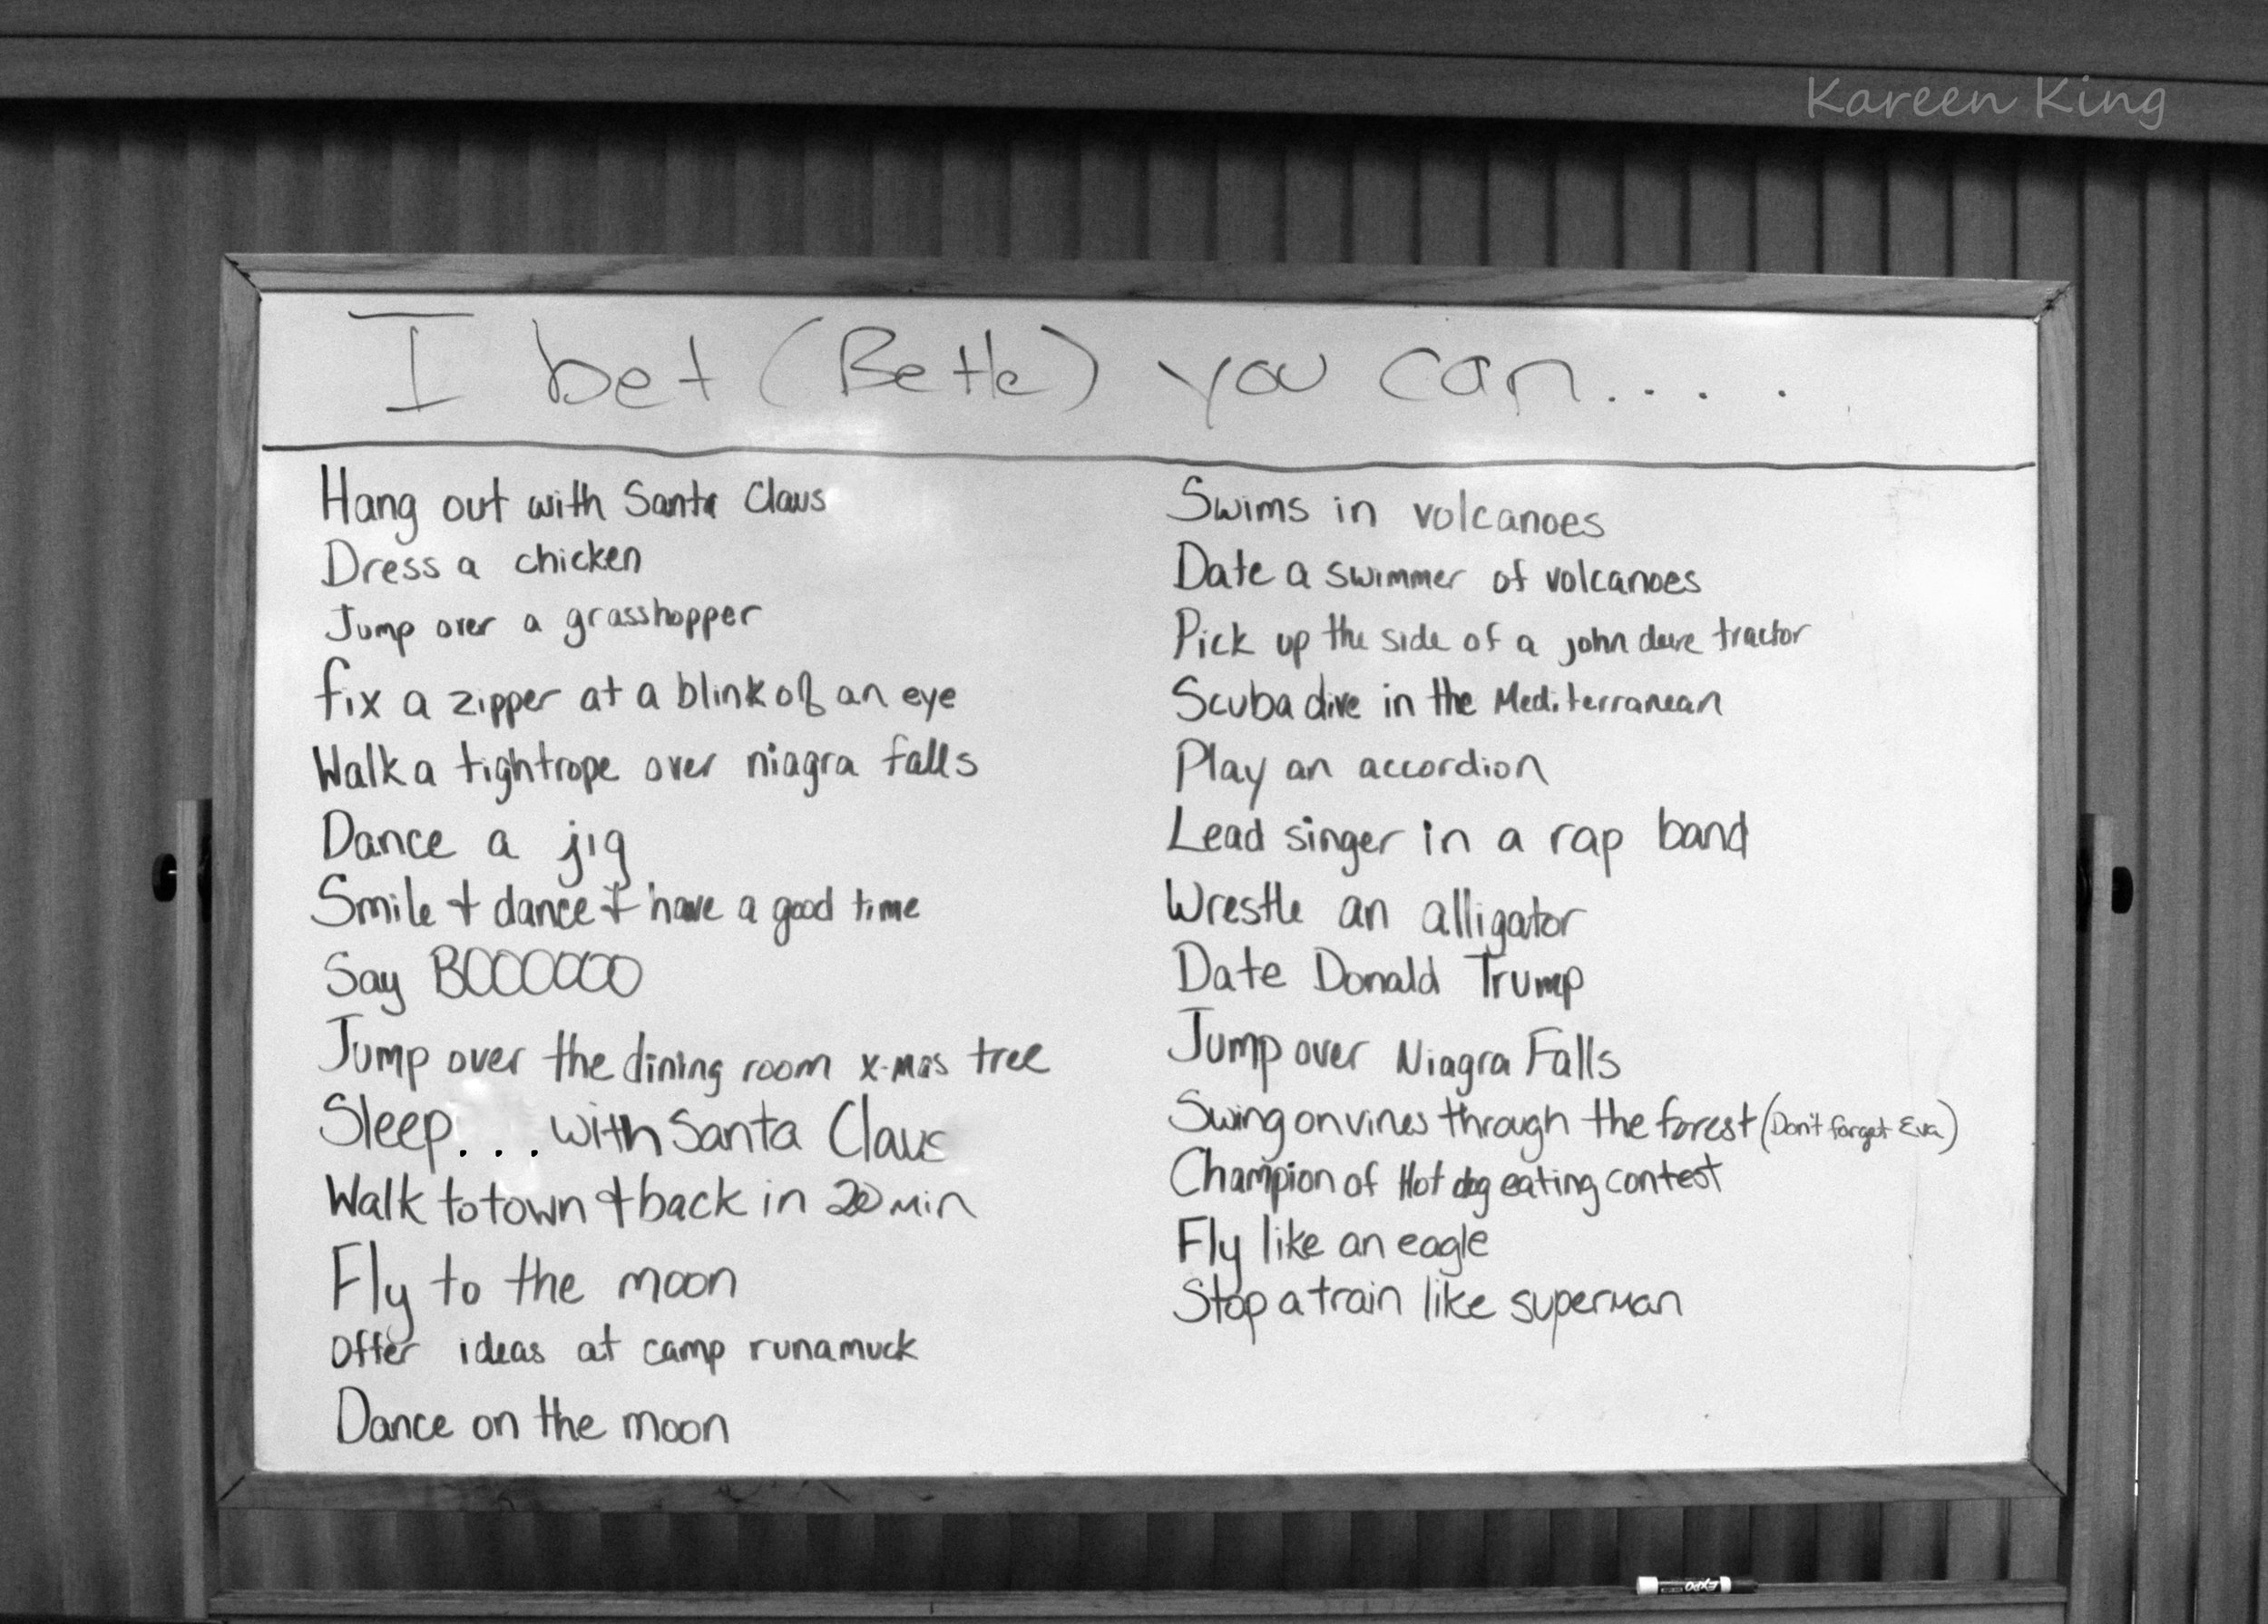 Kareen King
I bet (Bette) you can....
Hang out with Santa Claus
Dress a chicken
Jump over a grasshopper
fix a zipper at a blink of an eye
Walk a tightrope over niagra falls
Dance a jig
Smile + dance + have a good time
Say BOOOOOO
Jump over the dining room x-mas tree
Sleep... with Santa Claus
Walk to town + back in 20 min
Fly to the moon
Offer ideas at camp runamuck
Dance on the moon
Swims in volcanoes
Date a swimmer of volcanoes
Pick up the side of a john deere tractor
Scuba dive in the Mediterranean
Play an accordion
Lead singer in a rap band
Wrestle an alligator
Date Donald Trump
Jump over Niagra Falls
Swing on vines through the forest (Don't forget Eva)
Champion of Hot dog eating contest
Fly like an eagle
Stop a train like superman
EXPO